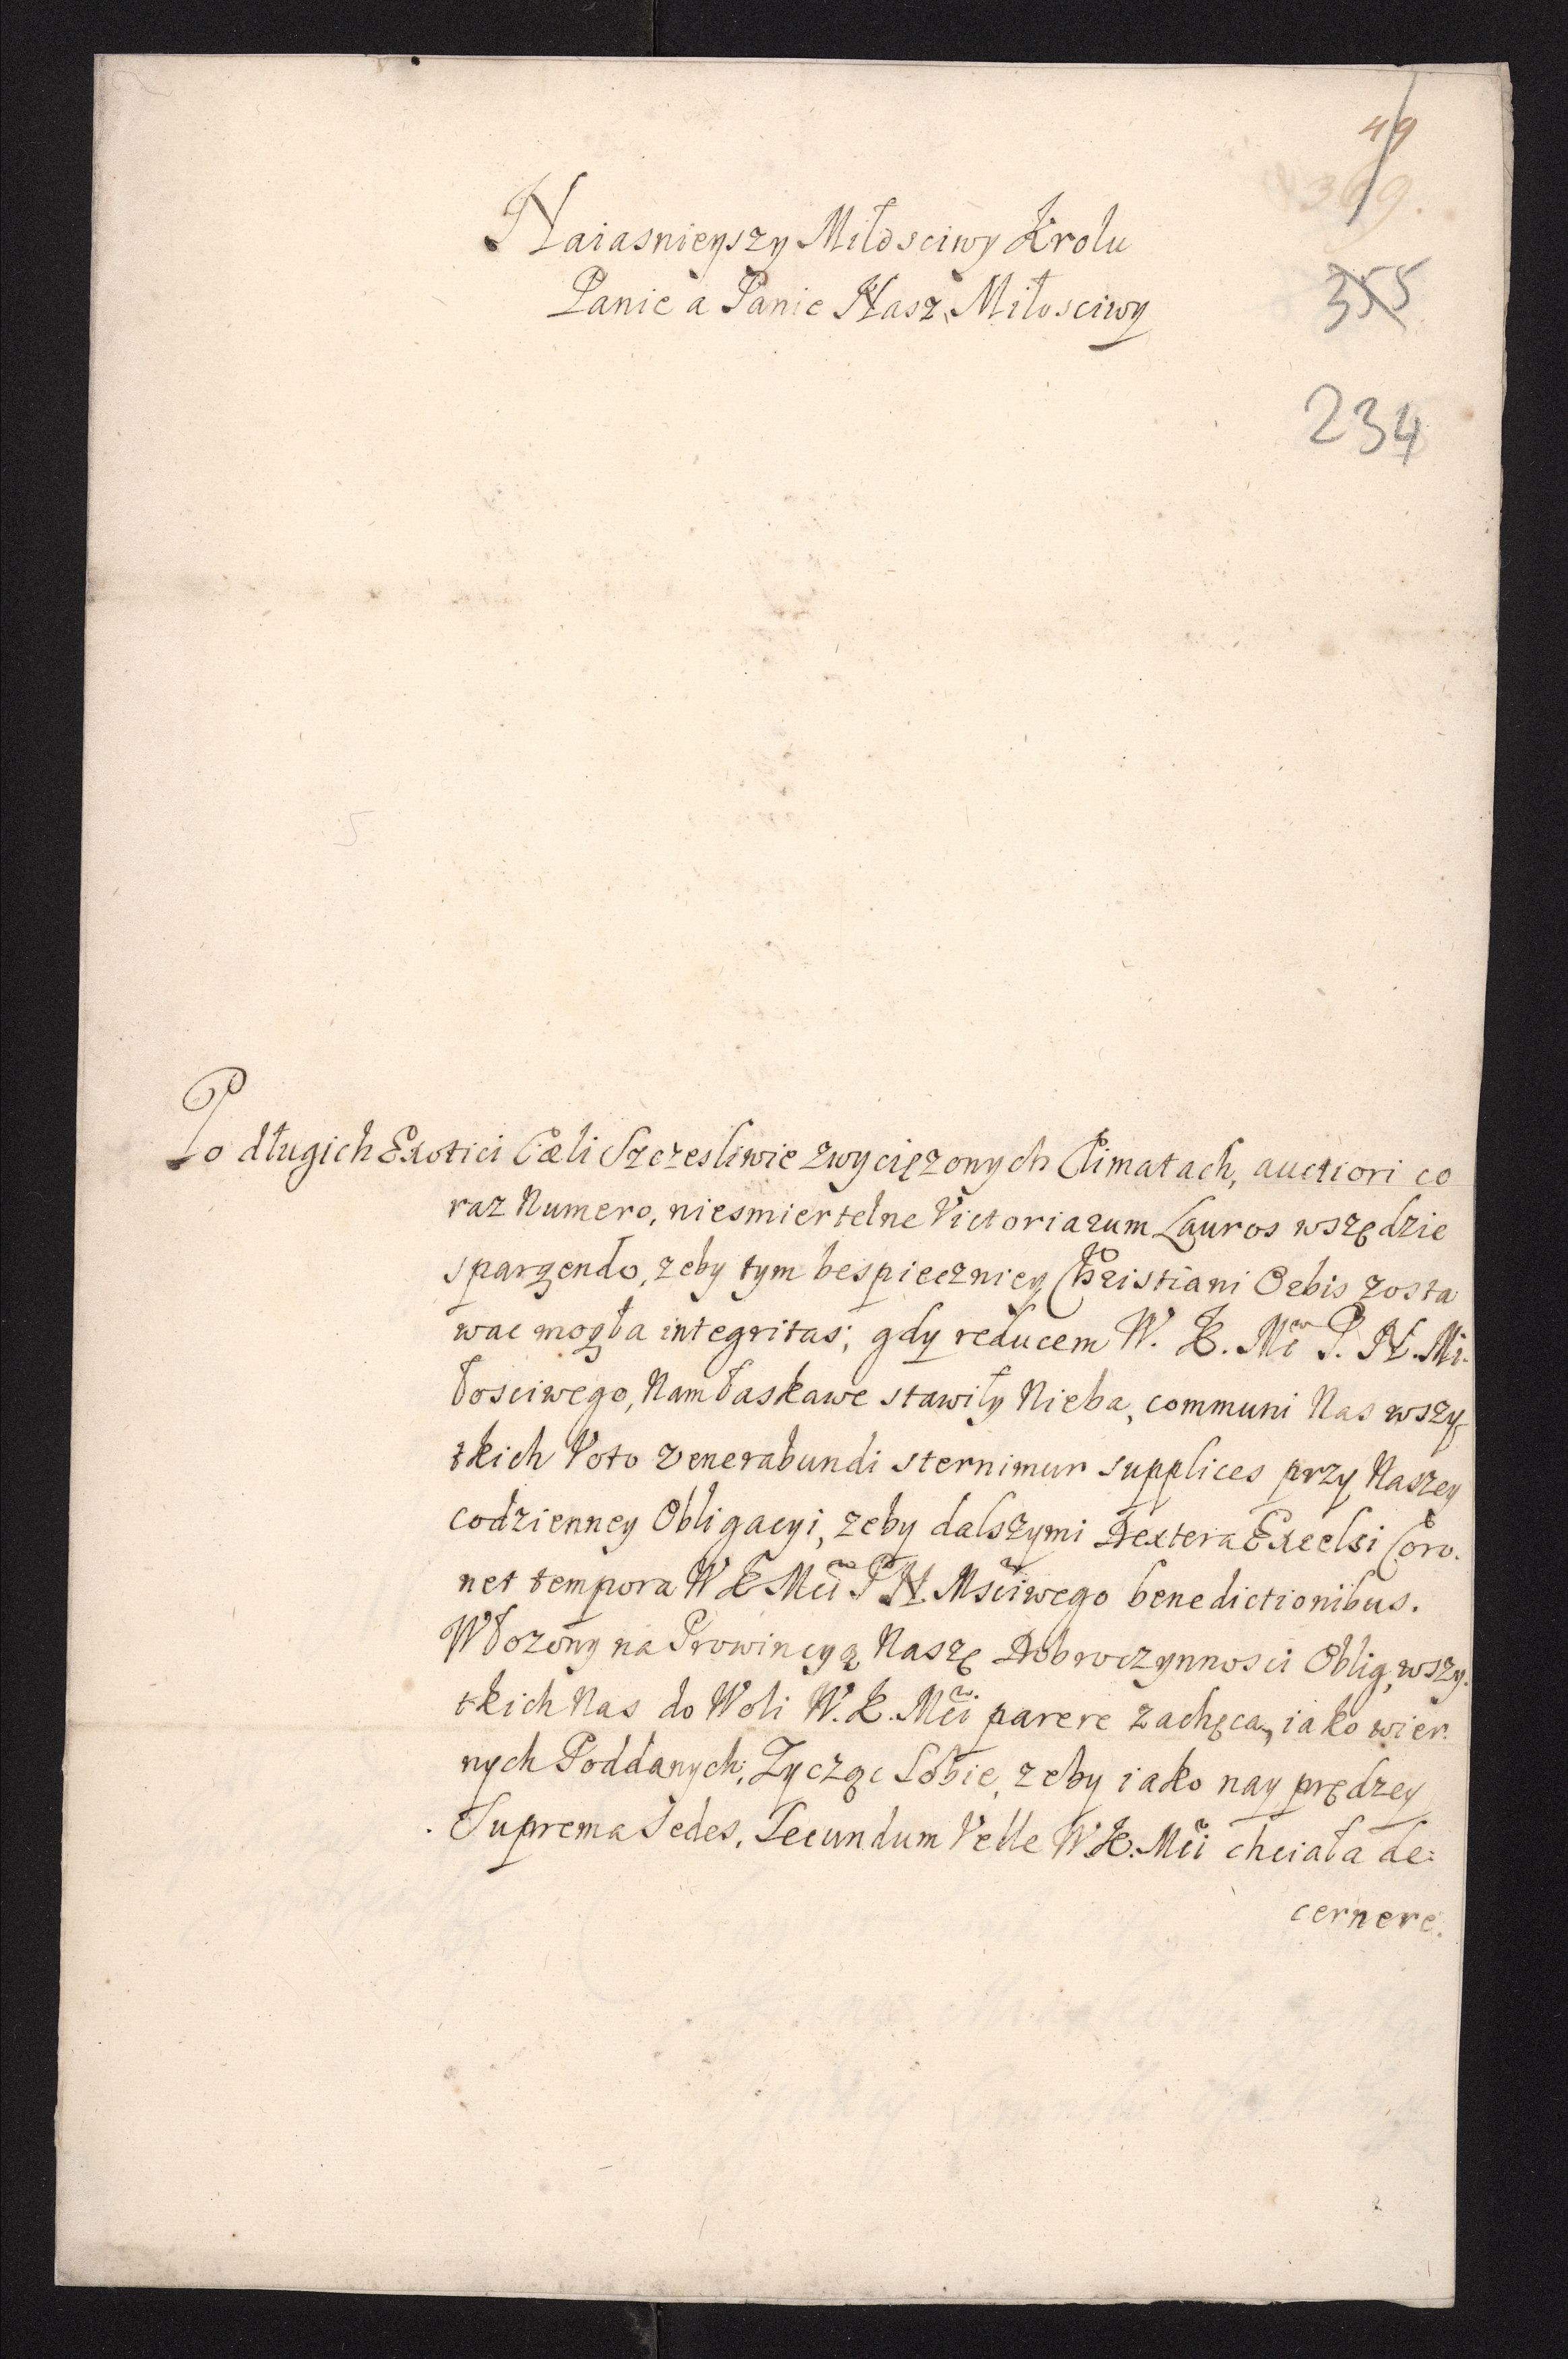 49
369.
Naiasnieyszy Miłosciwy Krolu
Panie a Panie Nasz Miłosciwy
355
234
Po długich Exotici Cæli Szczesliwie zwyciężonych Climatach, auctiori co
raz Numero, niesmiertelne Victoriarum Lauros wszędzie
spargendo, zeby tym bespieczniey Christiani Orbis zosta
wac mogła integritas; gdy reducem W. K. Mci P. N. Mi.
łosciwego, Nam łaskawe stawiły Nieba, communi Nas wszy
tkich Voto venerabundi sternimur supplices przy Naszey
codzienney Obligacyi, zeby dalszymi Dextera Excelsi Coro.
net tempora W K Mci P N. Msciwego benedictionibus.
Włozony na Prowincyą Naszę Dobroczynnosci Oblig, wszy.
tkich Nas do Woli W. K. Mci parere zachęca, iako wier.
nych Poddanych; Zycząc Sobie, zeby iako nay prędzey
Suprema Sedes, Secundum Velle W. K. Mci chciała de:
cernere.